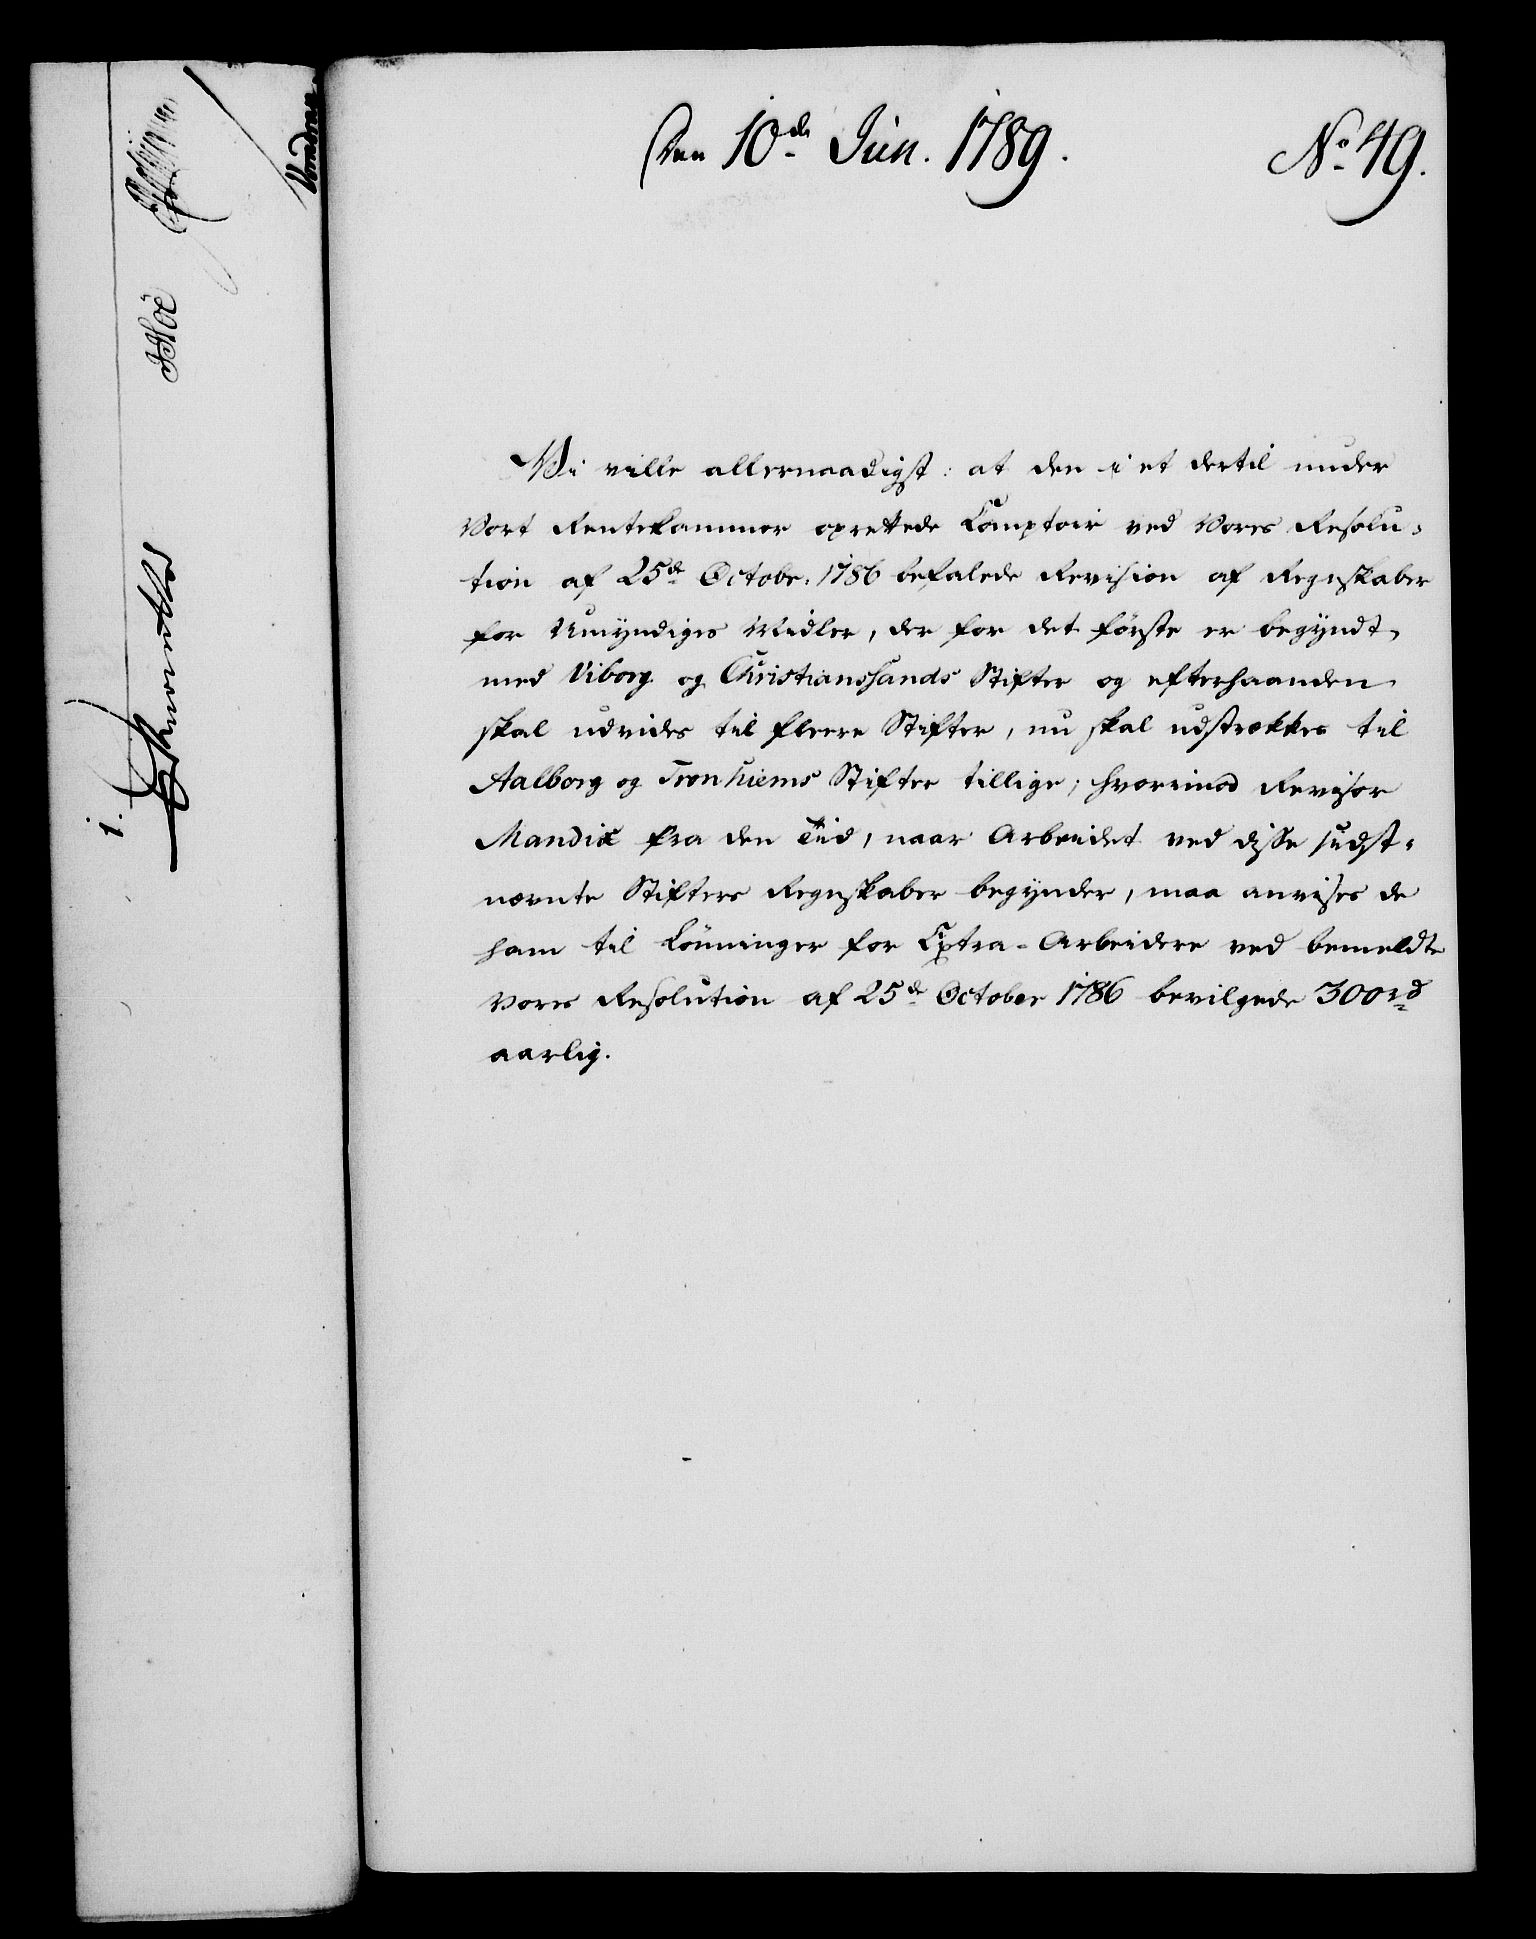 Den 10de Jun. 1789.
No 49.
Vi ville allernaadigst: at den i et dertil under
Vort Rentekammer oprettede Comptoir ved Vores Resolu-
tion af 25de Octobr. 1786 befalede Revision af Regnskaber
for Umyndiges Midler, der for det første er begyndt,
med Viborg og Christianssands Stifter og efterhaanden
skal udvides til fleere Stifter, nu skal udstrækkes til
Aalborg og Tronhiems Stifter tillige; hvorimod Revisor
Mandix fra den Tiid, naar Arbeidet ved disse sidst-
nævnte Stifters Regnskaber begynder, maa anvises de
ham til Lønninger for Extra-Arbeidere ved bemeldte
Vores Resolution af 25de October 1786 bevilgede 300 rd
aarlig.